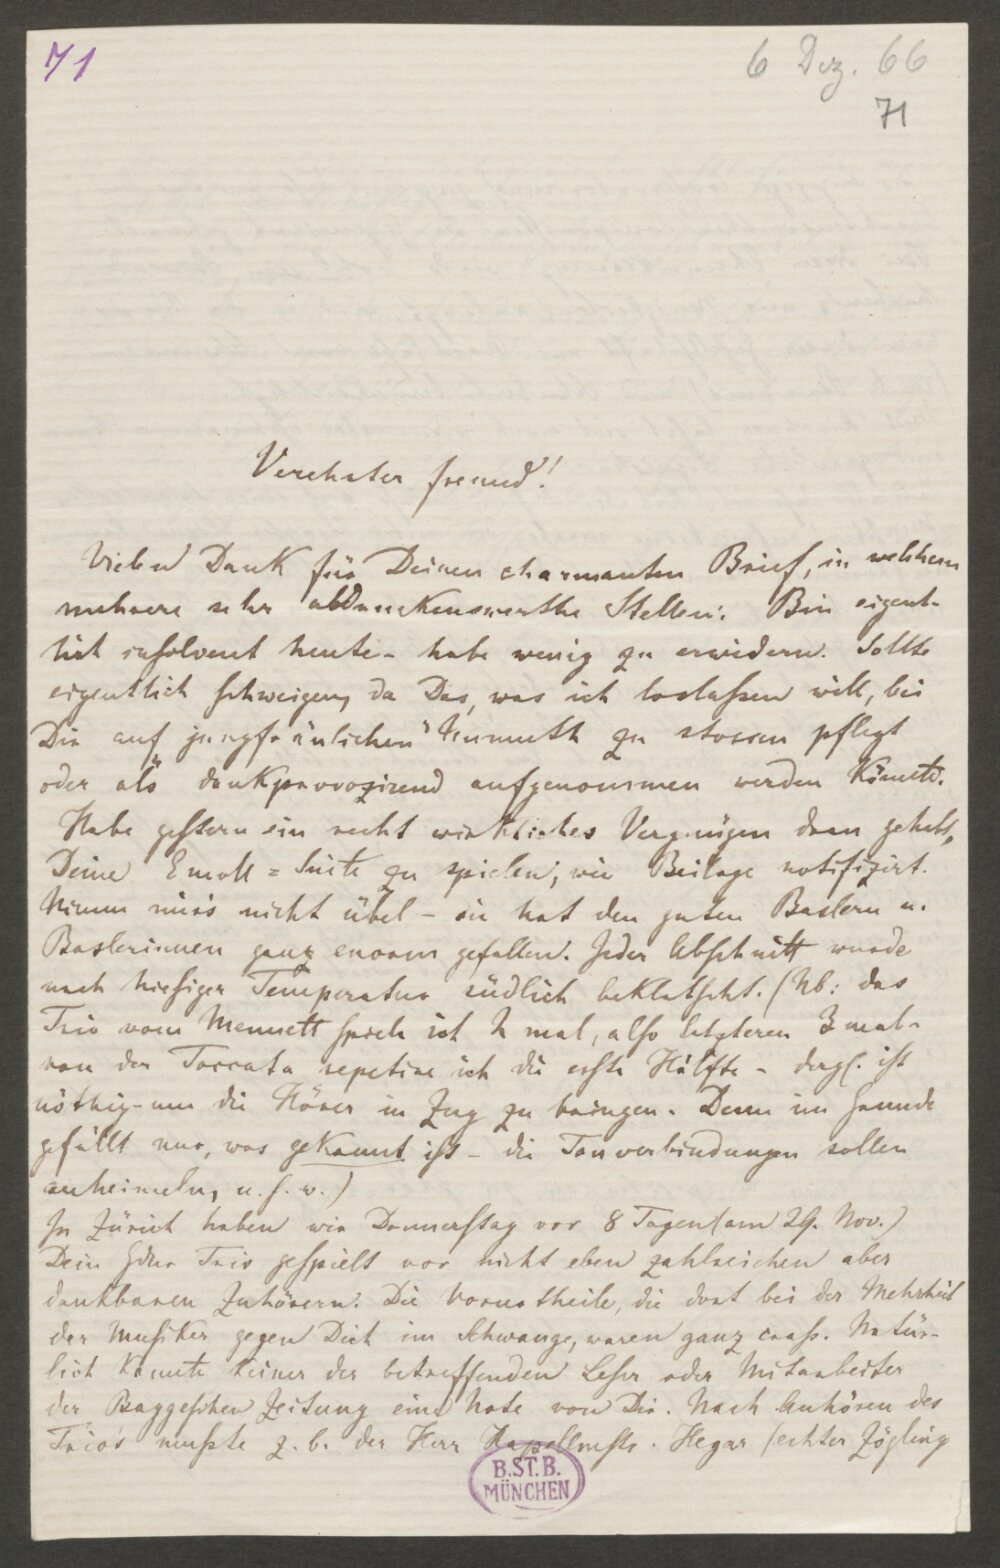 71
6 Dez. 66
71
Verehrter Freund!
Vielen Dank für Deinen charmanten Brief, in welchem
mehrere sehr abdruckenswerthe Stellen. Bin eigent-
lich insolvent heute – habe wenig zu erwidern. Sollte
eigentlich schweigen, da Das, was ich loslassen will, bei
Dir auf jungfräulichen Unmuth zu stossen pflegt
oder als dankprovozirend aufgenommen werden könnte.
Habe gestern ein recht wirkliches Vergnügen dran gehabt,
Deine Emoll=Suite zu spielen, wie Beilage notifizirt.
Nimm mir's nicht übel – sie hat den guten Baslern u.
Baslerinnen ganz enorm gefallen. Jeder Abschnitt wurde
nach hiesiger Temperatur südlich beklatscht. (Nb: das
Trio vom Menuett spiele ich 2 mal, also letzteren 3 mal –
von der Toccata repetire ich die erste Hälfte – dergl. ist
nöthig – um die Hörer in Zug zu bringen. Denn im Grunde
gefällt nur, was gekannt ist – die Tonverbindungen sollen
anheimeln, u. s. w.)
In Zürich haben wir Donnerstag vor 8 Tagen (am 29. Nov.)
Dein Gdur Trio gespielt vor nicht eben zahlreichen aber
dankbaren Zuhörern. Die Vorurtheile, die dort bei der Mehrheit
der Musiker gegen Dich im Schwange, waren ganz crass. Natür-
lich kannte keiner der betreffenden Leser oder Mitarbeiter
der Baggeschen Zeitung eine Note von Dir. Nach Anhören des
Trio's musste z. b. der Herr Kapellmstr. Hegar (echter Zögling
B.ST.B.
MÜNCHEN